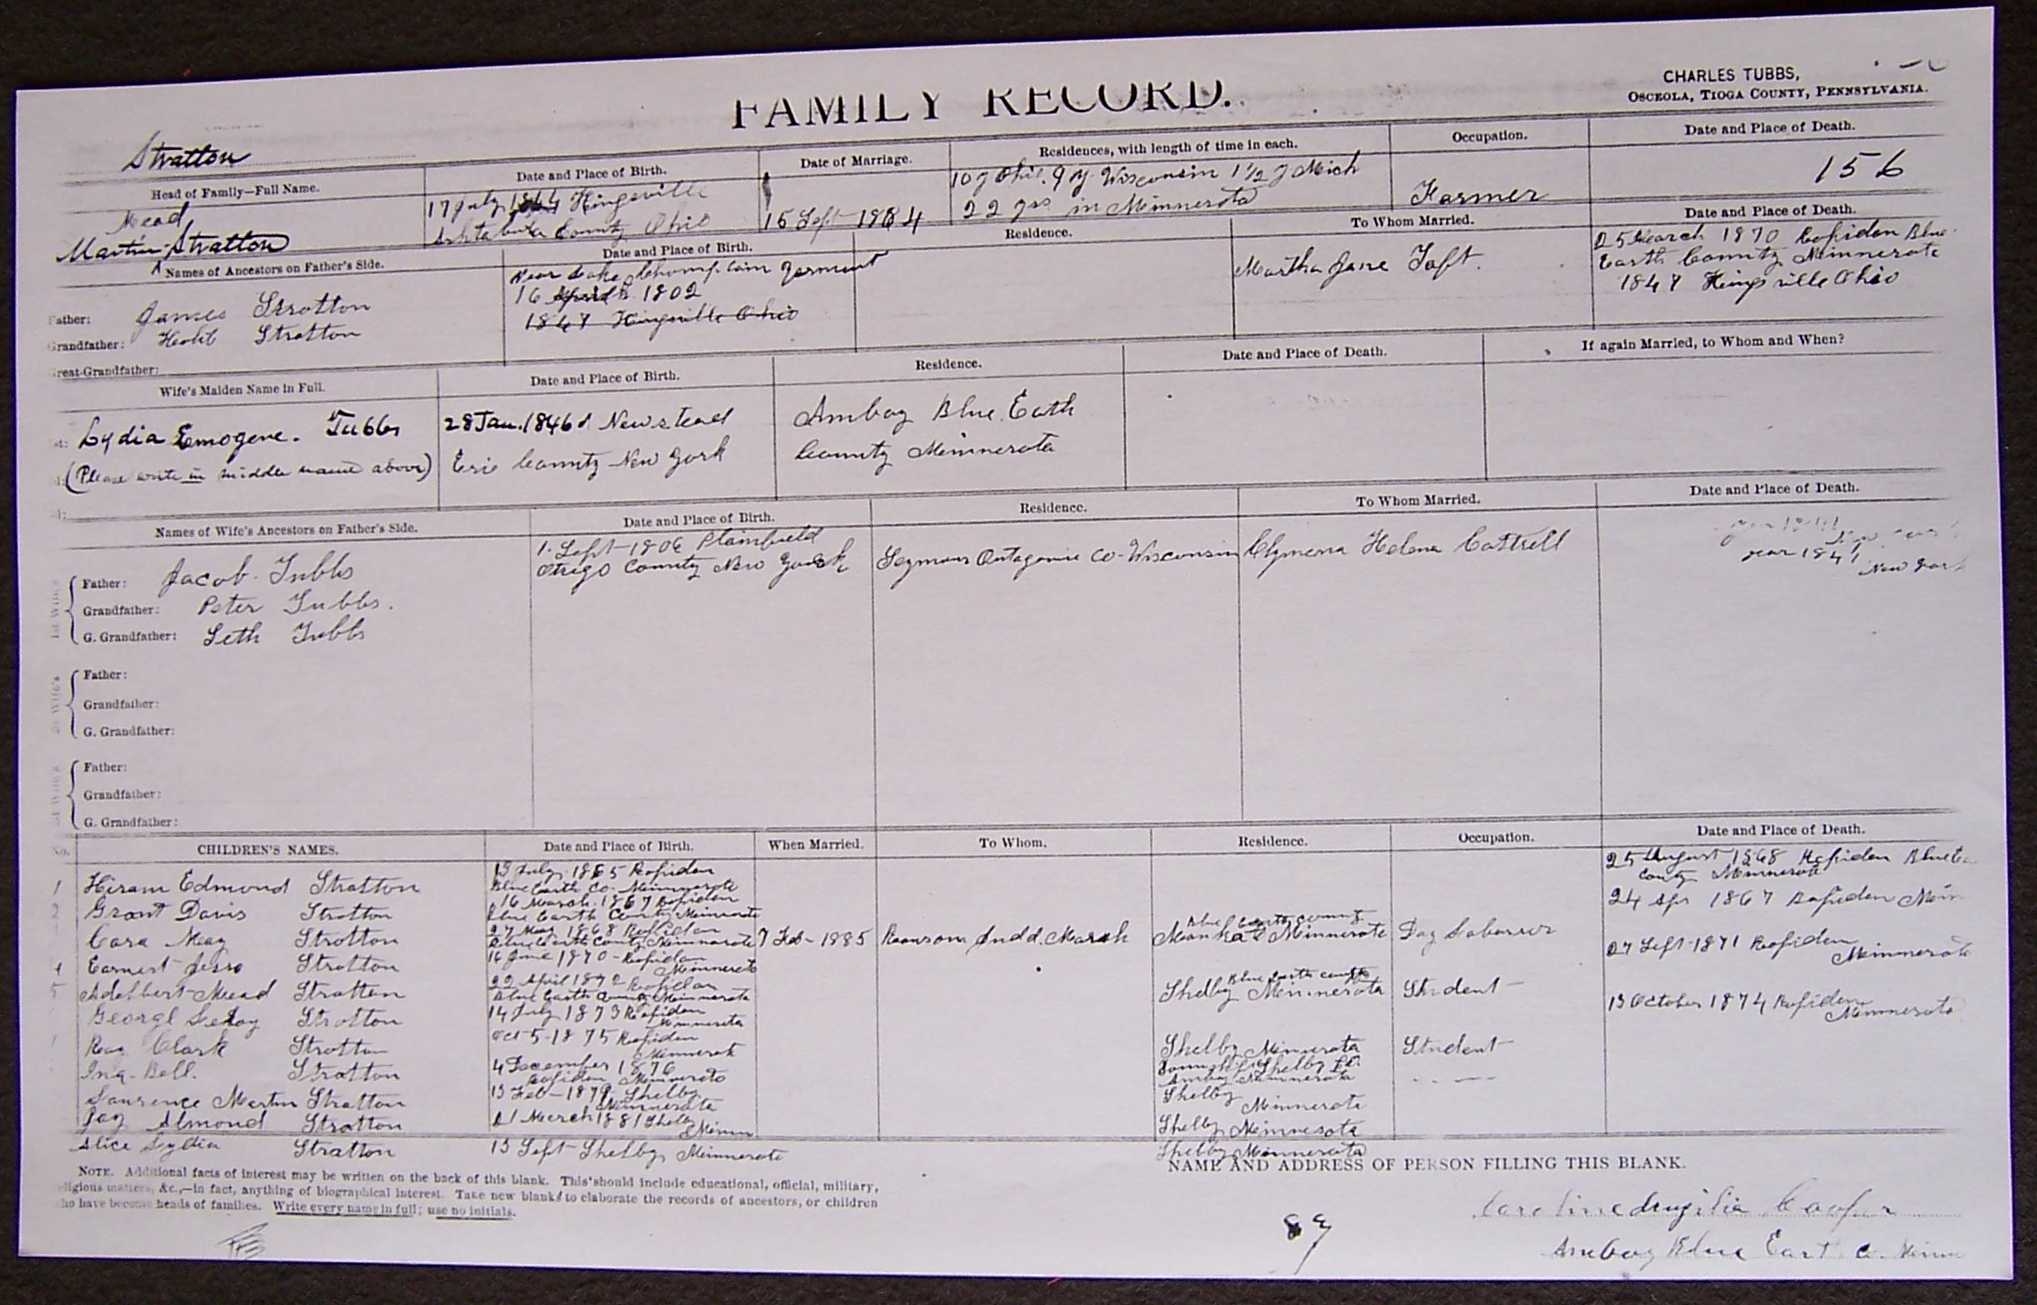 FAMILY RECORD.
CHARLES TUBBS,
OSCEOLA, TIOGA COUNTY, PENNSYLVANIA.
Stratton
Head of Family—Full Name.
Date and Place of Birth.
Date of Marriage.
Residences, with length of time in each.
Occupation.
Date and Place of Death.
Mead
Martin Stratton
17 July 1844 Kingsville
Ashtabula County Ohio
15 Sept 1864
10 y Ohio. 9 y Wisconsin 1½ y Mich
22 yrs in Minnesota
Farmer
156
Names of Ancestors on Father's Side.
Date and Place of Birth.
Residence.
To Whom Married.
Date and Place of Death.
Father: James Stratton
Grandfather: Stratton
Great-Grandfather:
Near Lake Champlain Vermont
16 1802
1847 Kingsville Ohio
Martha Jane Taft.
25 March 1870 Rapidan Blue
Earth County Minnesota
1847 Kingsville Ohio
Wife's Maiden Name in Full.
Date and Place of Birth.
Residence.
Date and Place of Death.
If again Married, to Whom and When?
Lydia Emogene. Tubbs
(Please write in middle name above)
28 Jan. 1846 Newstead
Erie County New York
Amboy Blue Eath
County Minnesota
Names of Wife's Ancestors on Father's Side.
Date and Place of Birth.
Residence.
To Whom Married.
Date and Place of Death.
Father: Jacob Tubbs
Grandfather: Peter Tubbs.
G. Grandfather: Seth Tubbs
1. Sept 1806 Plainfield
Otsego County New York
Seymour Outagamie Co Wisconsin
Clymena Helena Cottrell
year 1841
New York
Father:
Grandfather:
G. Grandfather:
Father:
Grandfather:
G. Grandfather:
No.
CHILDREN'S NAMES.
Date and Place of Birth.
When Married.
To Whom.
Residence.
Occupation.
Date and Place of Death.
1 Hiram Edmond Stratton
13 July 1865 Rapidan
Blue Earth Co. Minnesota
25 August 1868 Rapidan Blue Ea
County Minnesota
2 Grant Davis Stratton
16 March 1867 Rapidan
Blue Earth County Minnesota
24 Apr 1867 Rapidan Minn
Cora May Stratton
27 May 1868 Rapidan
Blue Earth County Minnesota
7 Feb - 1885
Ransom Judd Marsh
Blue Earth County
Mankato Minnesota
Day Laborer
4 Earnest Jesse Stratton
16 June 1870 - Rapidan
Minnesota
27 Sept 1871 Rapidan
Minnesota
5 Adelbert Mead Stratton
22 April 1872 Rapidan
Blue Earth County Minnesota
Blue Earth County
Shelby Minnesota
Student
George Leroy Stratton
14 July 1873 Rapidan
Minnesota
13 October 1874 Rapidan
Minnesota
Ray Clark Stratton
Oct 5 - 1875 Rapidan
Minnesota
Shelby Minnesota
Student
Ina Bell. Stratton
4 December 1876
Rapidan Minnesota
Amboy Minnesota
Laurence Martin Stratton
13 Feb - 1879 Shelby
Minnesota
Shelby
Minnesota
Jay Almond Stratton
21 March 1881 Shelby
Minn
Shelby Minnesota
Alice Lydia Stratton
13 Sept Shelby Minnesota
Shelby Minnesota
NOTE. Additional facts of interest may be written on the back of this blank. This should include educational, official, military,
religious matters, &c.,—in fact, anything of biographical interest. Take new blanks to elaborate the records of ancestors, or children
who have become heads of families. Write every name in full; use no initials.
NAME AND ADDRESS OF PERSON FILLING THIS BLANK.
Caroline Cooper
Amboy Blue Eart Co. Minn
89